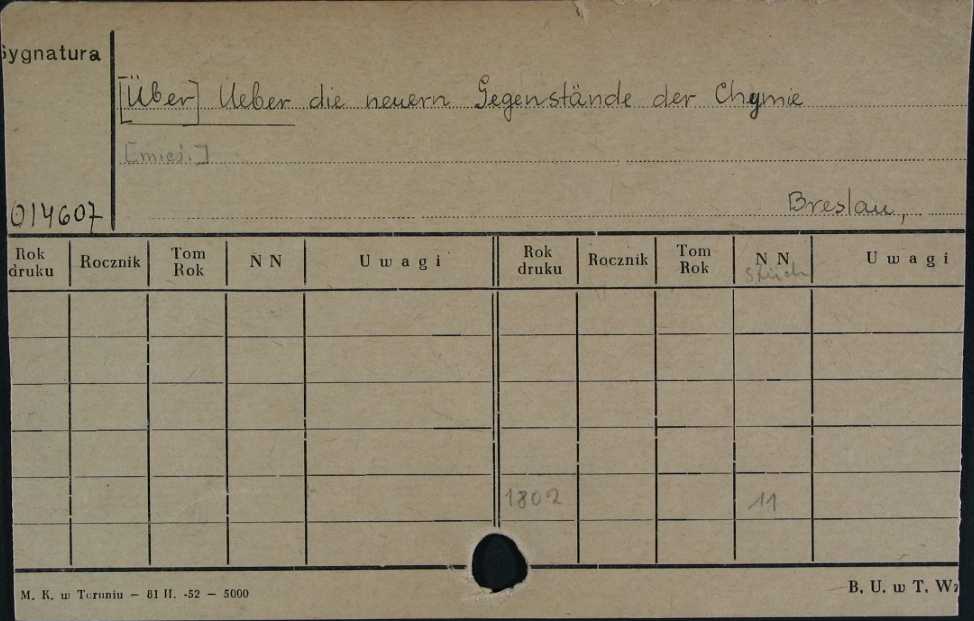 Sygnatura
[Über] Ueber die neuern Gegenstände der Chymie
[mies.]
014607
Breslau,
Rok druku Rocznik Tom Rok N N Uwagi Rok druku Rocznik Tom Rok N N Uwagi
Stück
1802 11
M. K. w Toruniu – 81 II. -52 – 5000
B. U. w T. Wz